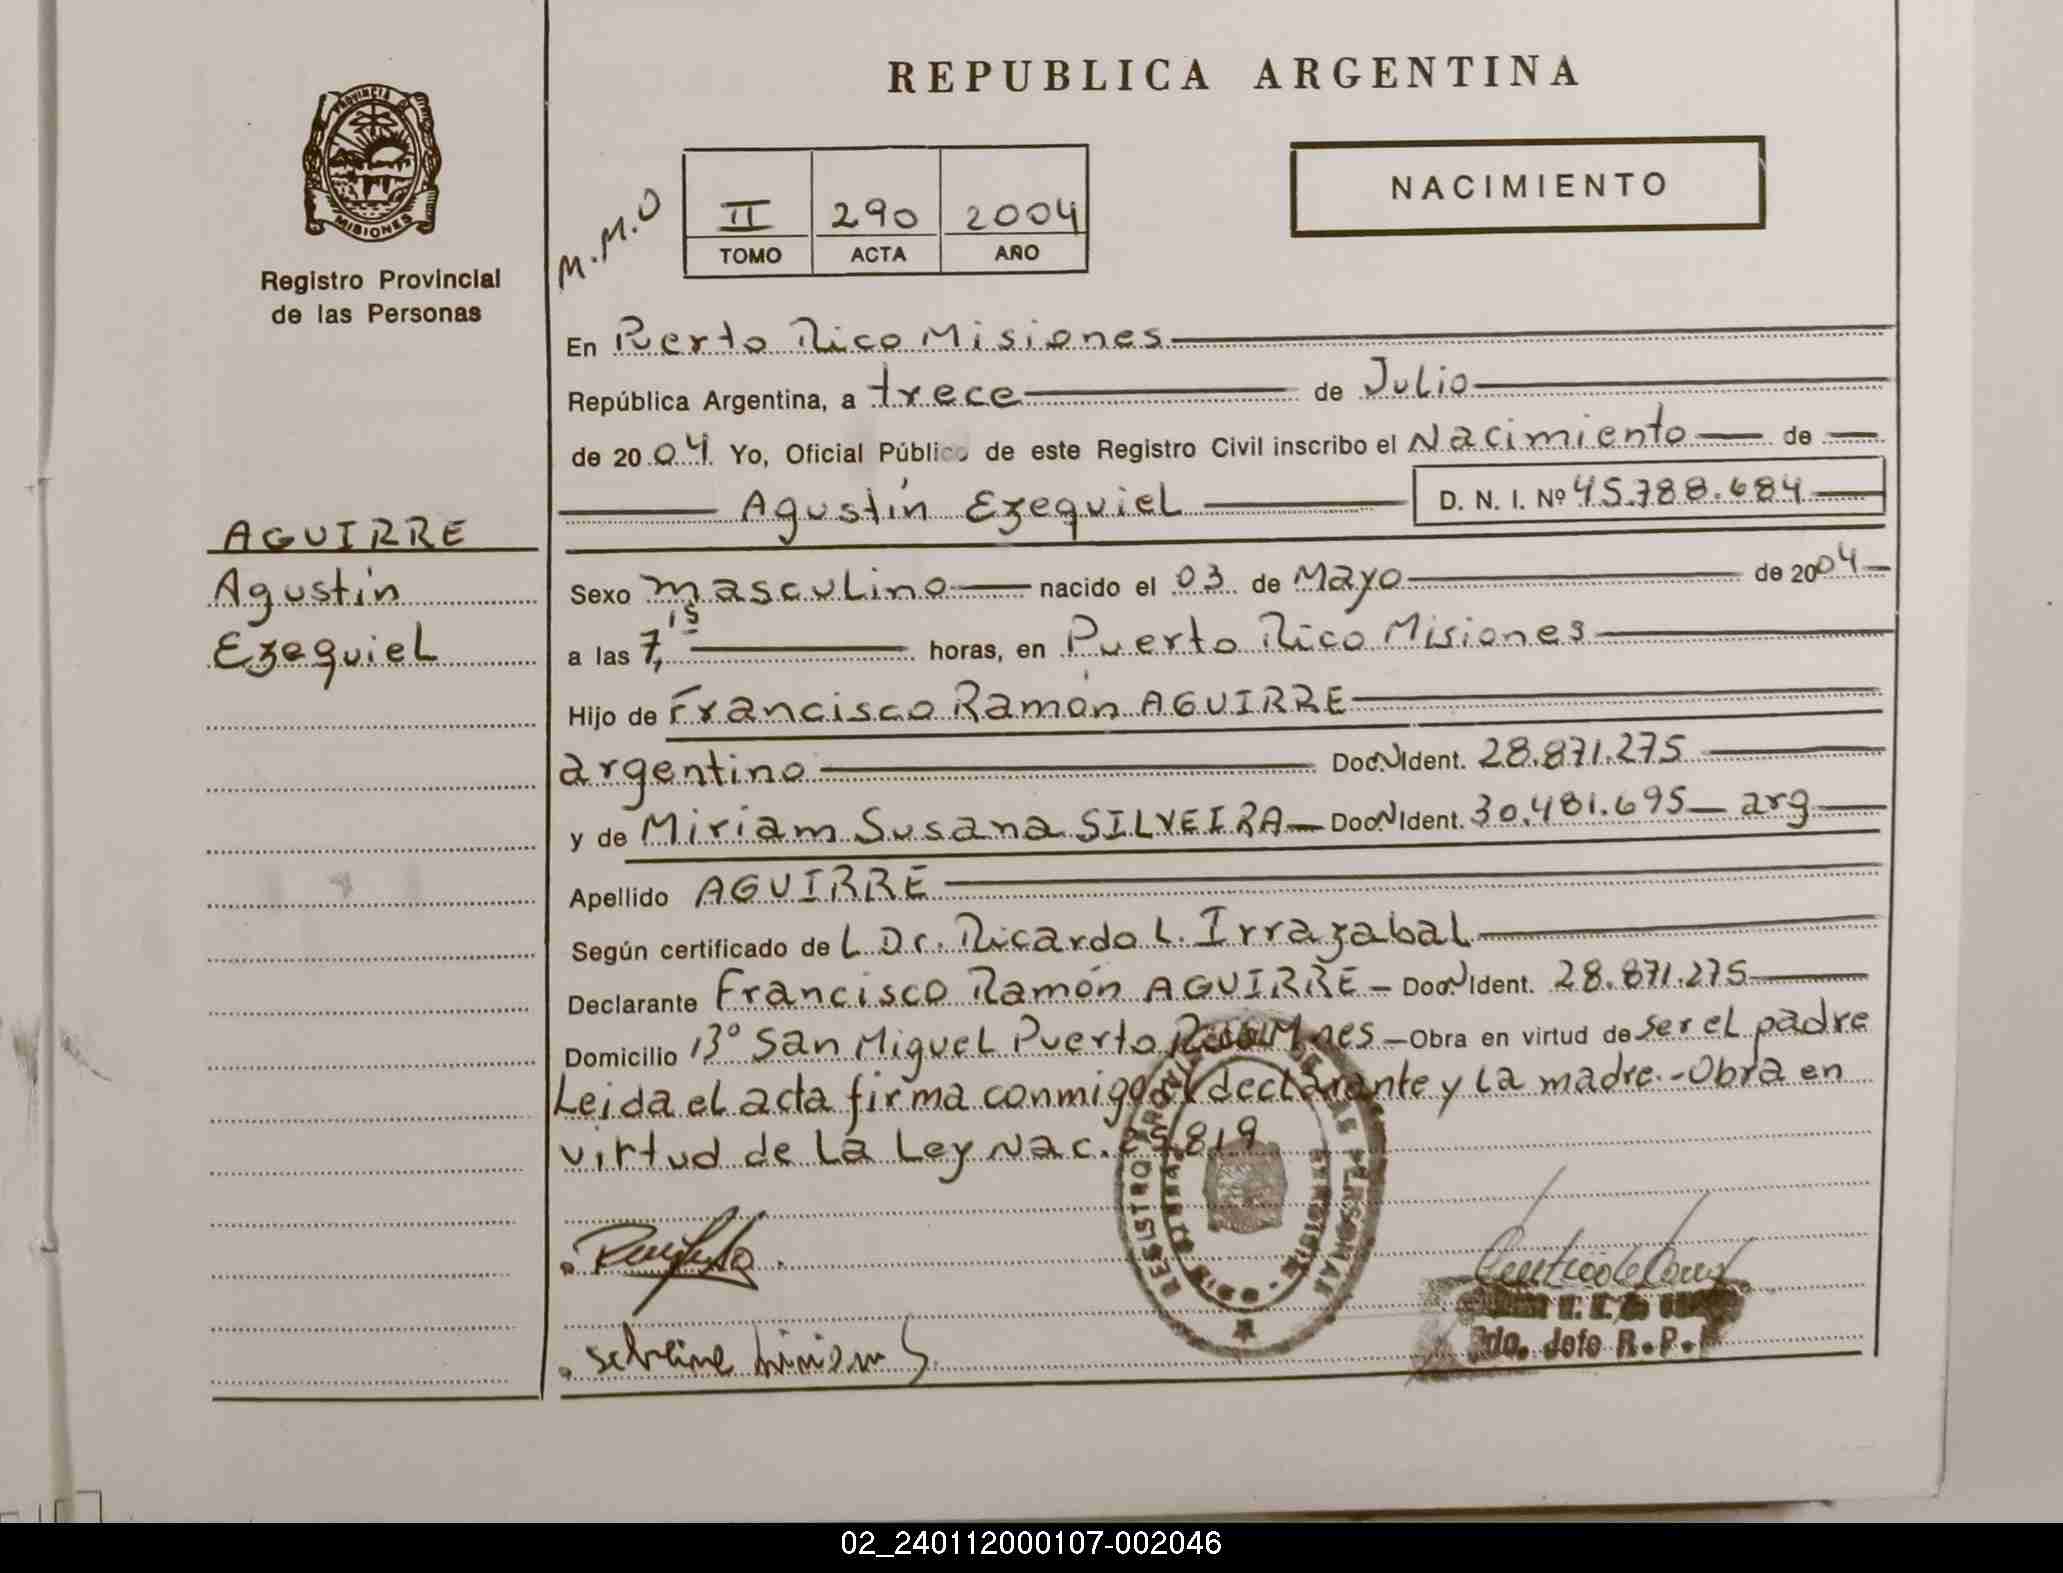 REPUBLICA ARGENTINA
PROVINCIA DE
MISIONES
Registro Provincial
de las Personas
M.M.O
II 290 2004
TOMO ACTA AÑO
NACIMIENTO
En Puerto Rico Misiones
República Argentina, a trece de Julio
de 2004 Yo, Oficial Público de este Registro Civil inscribo el Nacimiento de
Agustín Ezequiel D. N. I. Nº 45.788.684
AGUIRRE
Agustín
Ezequiel
Sexo masculino nacido el 03 de Mayo de 2004
a las 7,15 horas, en Puerto Rico Misiones
Hijo de Francisco Ramón AGUIRRE
argentino Doc.N.Ident. 28.871.275
y de Miriam Susana SILVEIRA Doc.N.Ident. 30.481.695 arg
Apellido AGUIRRE
Según certificado de L Dr. Ricardo L. Irrazabal
Declarante Francisco Ramón AGUIRRE - Doc.N.Ident. 28.871.275
Domicilio 13º San Miguel Puerto Rico Mnes - Obra en virtud de ser el padre
Leida el acta firma conmigo el declarante y La madre.-Obra en
virtud de La Ley Nac. 25.819
REGISTRO PROVINCIAL DE LAS PERSONAS
MISIONES
Silveira Miriam S
2do. Jefe R.P.
02_240112000107-002046